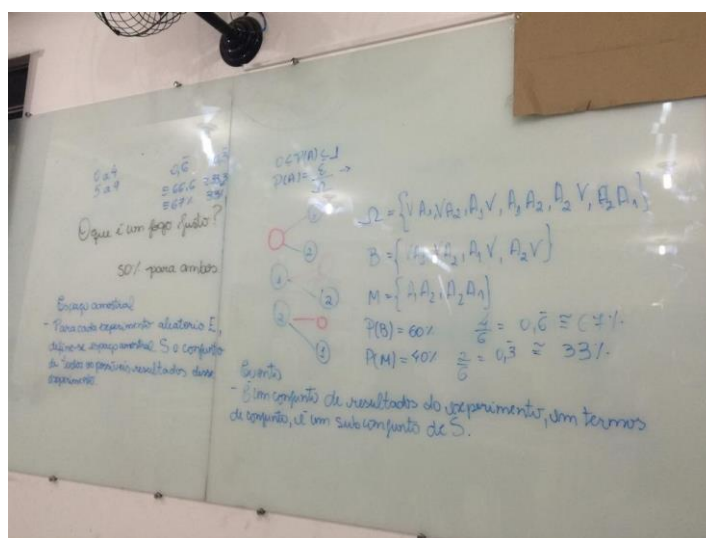 0 a 4 0,6̄
5 a 9 ≅ 66,6
≅ 67%
O que é um jogo justo?
50% para ambos
Espaço amostral
- Para cada experimento aleatorio E,
define-se espaço amostral S o conjunto
de todos os possíveis resultados desse
experimento
0≤P(A)≤1
P(A)=E/Ω →
2
1
2
2
1
Ω = {VA₁,VA₂,A₁V,A₁A₂,A₂V,A₂A₁}
B = {VA₁,VA₂,A₁V,A₂V}
M = {A₁A₂,A₂A₁}
P(B)=60% 4/6 = 0,6̄ ≅ 67%.
P(M)=40% 2/6 = 0,3̄ ≅ 33%.
Evento
- É um conjunto de resultados do experimento, em termos
de conjunto, é um subconjunto de S.